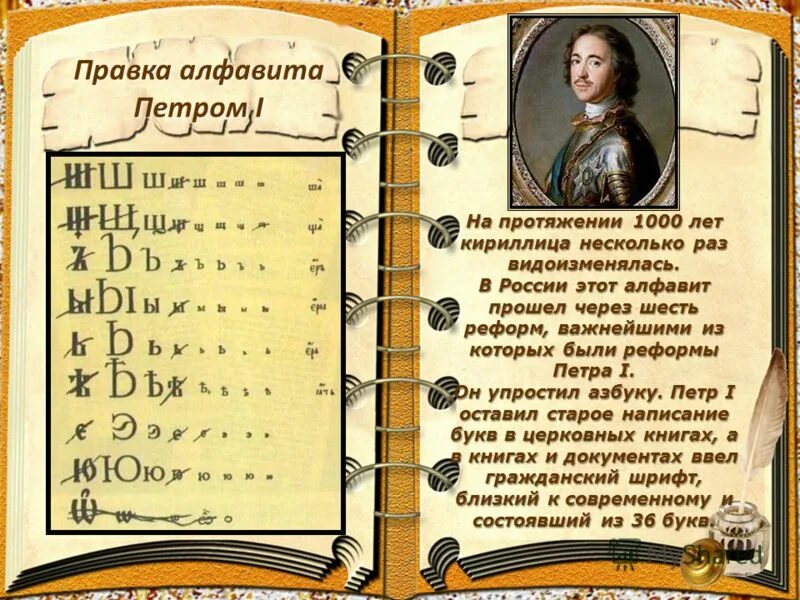 Правка алфавита
Петром I
Ш Ш ш ш ш ш ш ш
Щ Щ щ щ щ щ щ щ
Ъ Ъ ъ ъ ъ ъ ъ ъ
Ы Ы ы ы ы ы ы ы
Ь Ь ь ь ь ь ь ь
Ѣ Ѣ ѣ ѣ ѣ ѣ ѣ ѣ
Э Э э э э э э э
Ю Ю ю ю ю ю ю ю
На протяжении 1000 лет
кириллица несколько раз
видоизменялась.
В России этот алфавит
прошел через шесть
реформ, важнейшими из
которых были реформы
Петра I.
Он упростил азбуку. Петр I
оставил старое написание
букв в церковных книгах, а
в книгах и документах ввел
гражданский шрифт,
близкий к современному и
состоявший из 36 букв.
MyShared